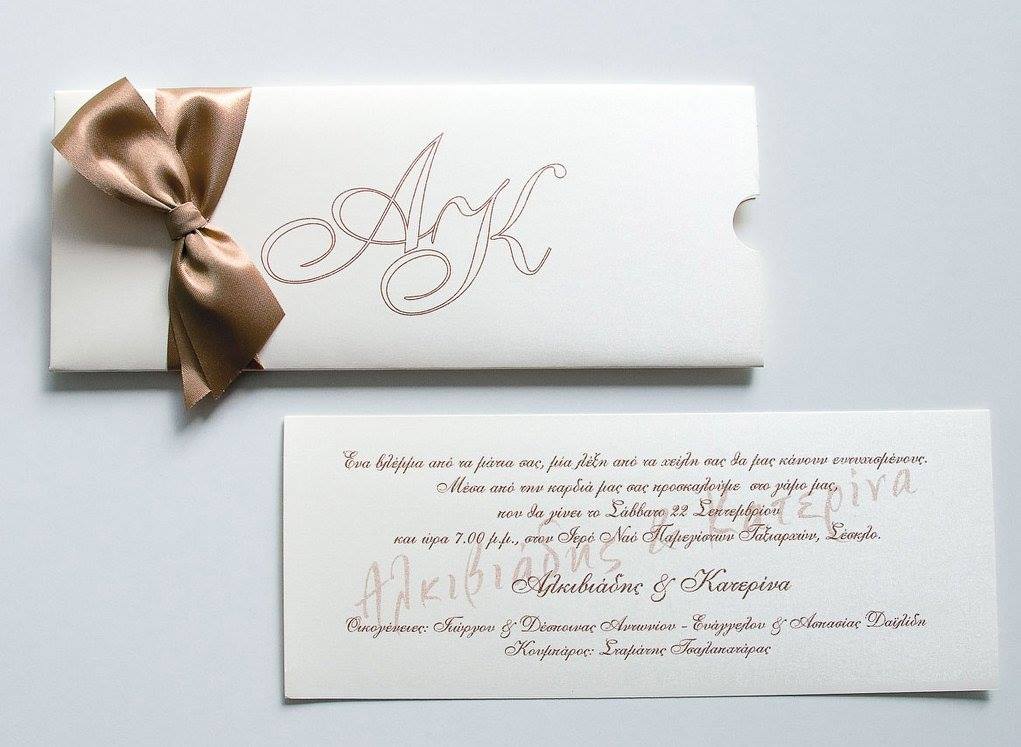 Α Κ
Ένα βλέμμα από τα μάτια σας, μία λέξη από τα χείλη σας θα μας κάνουν ευτυχισμένους.
Μέσα από την καρδιά μας σας προσκαλούμε στο γάμο μας,
που θα γίνει το Σάββατο 22 Σεπτεμβρίου
και ώρα 7.00 μ.μ., στον Ιερό Ναό Παμεγίστων Ταξιαρχών, Σέσκλο.
Αλκιβιάδης & Κατερίνα
Αλκιβιάδης & Κατερίνα
Οικογένειες: Γιώργου & Δέσποινας Αντωνίου - Ευάγγελου & Ασπασίας Δαϊλίδη
Κουμπάρος: Σταμάτης Τσαλαπατάρας